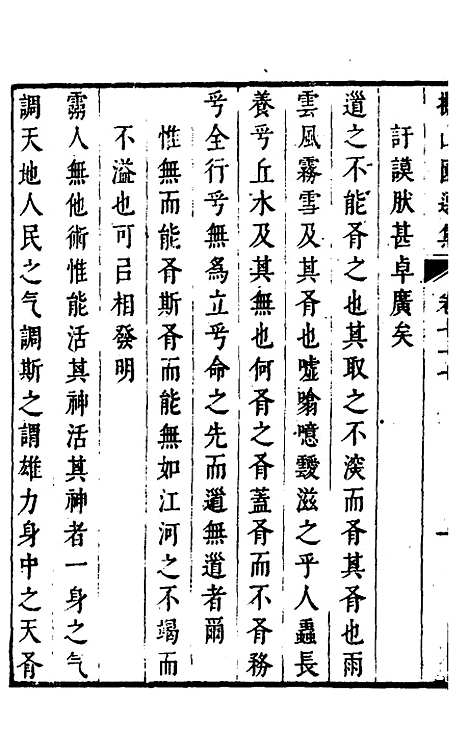 山園選集 卷七十七 一
訏謨肰甚卓廣矣
道之不能有之也其取之不湥而有其有也雨
雲風霧雪及其有也噓噏噫靉滋之乎人蟲長
養乎丘水及其無也何有之有蓋有而不有務
乎全行乎無爲立乎命之先而道無道者爾
惟無而能有斯有而能無如江河之不竭而
不溢也可㠯相發明
霛人無他術惟能活其神活其神者一身之气
調天地人民之气調斯之謂雄力身中之天有